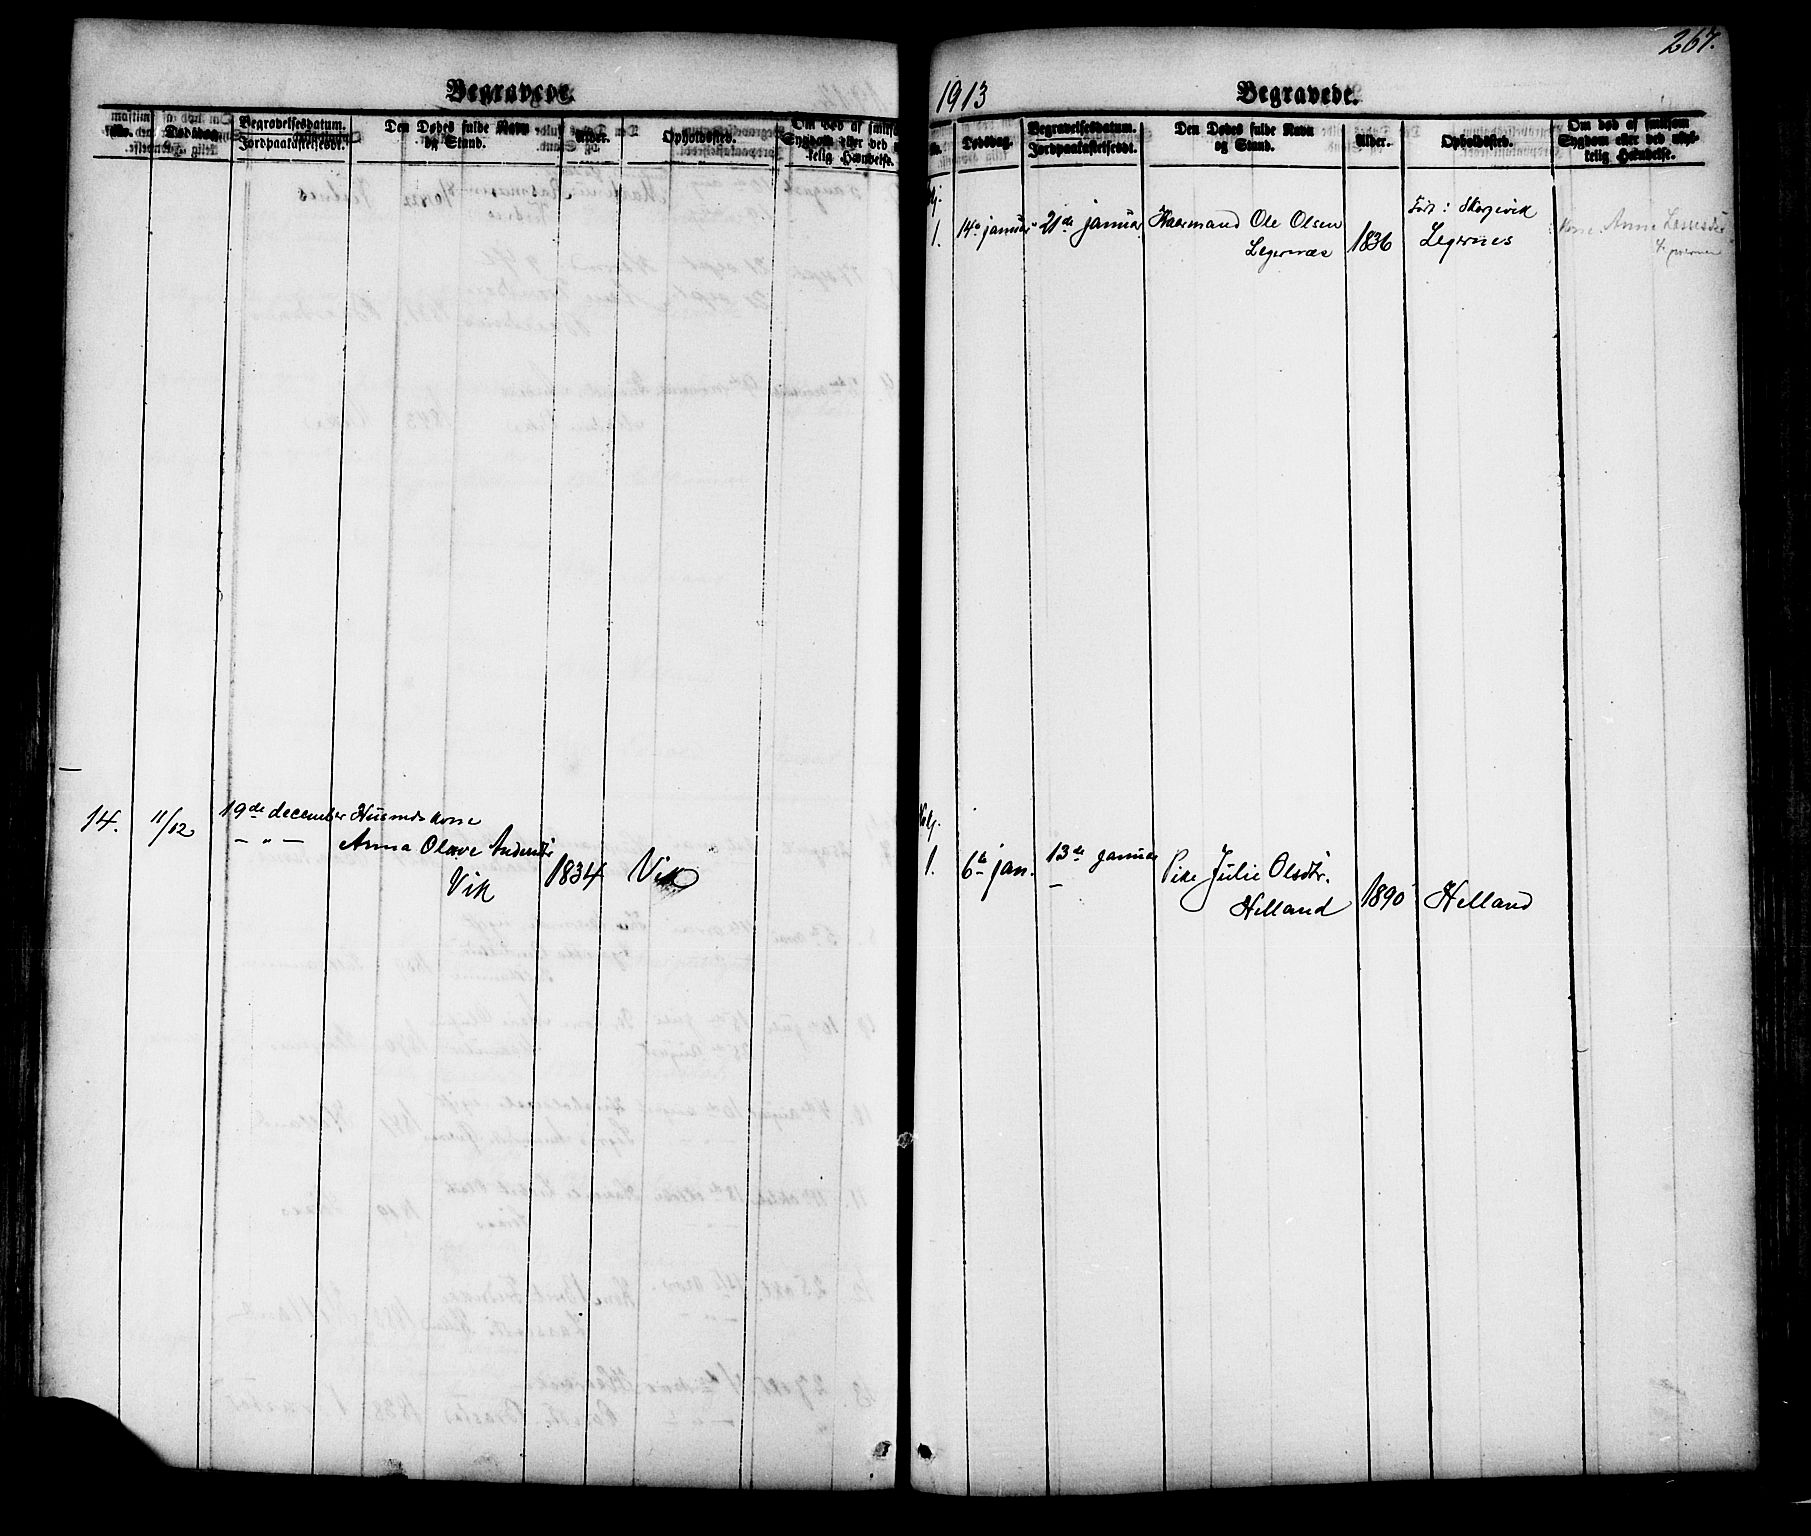 Begravede.
No.
Dødsdag.
Begravelsesdatum.
Jordpaakastelsesdt.
Den Dødes fulde Navn
og Stand.
Alder.
Opholdssted.
Om død af smitsom
Sygdom eller ved
kelig Hændelse.
14.
11/12
19de december
— " —
Husmdskone
Anna Olave Andersdtr
Vik
1834
Vik
267.
1913
Begravede.
No.
Dødsdag.
Begravelsesdatum.
Jordpaakastelsesdt.
Den Dødes fulde Navn
og Stand.
Alder.
Opholdssted.
Om død af smitsom
Sygdom eller ved ulyk-
kelig Hændelse.
1.
14de januar
21de januar
Kaarmand Ole Olsen
Legernæs
1836
Født: Skorgevik
Legernes
Kone Anna
Kalj.
1.
6te jan.
13de januar
—
Pike Julie Olsdtr.
Helland
1890
Helland